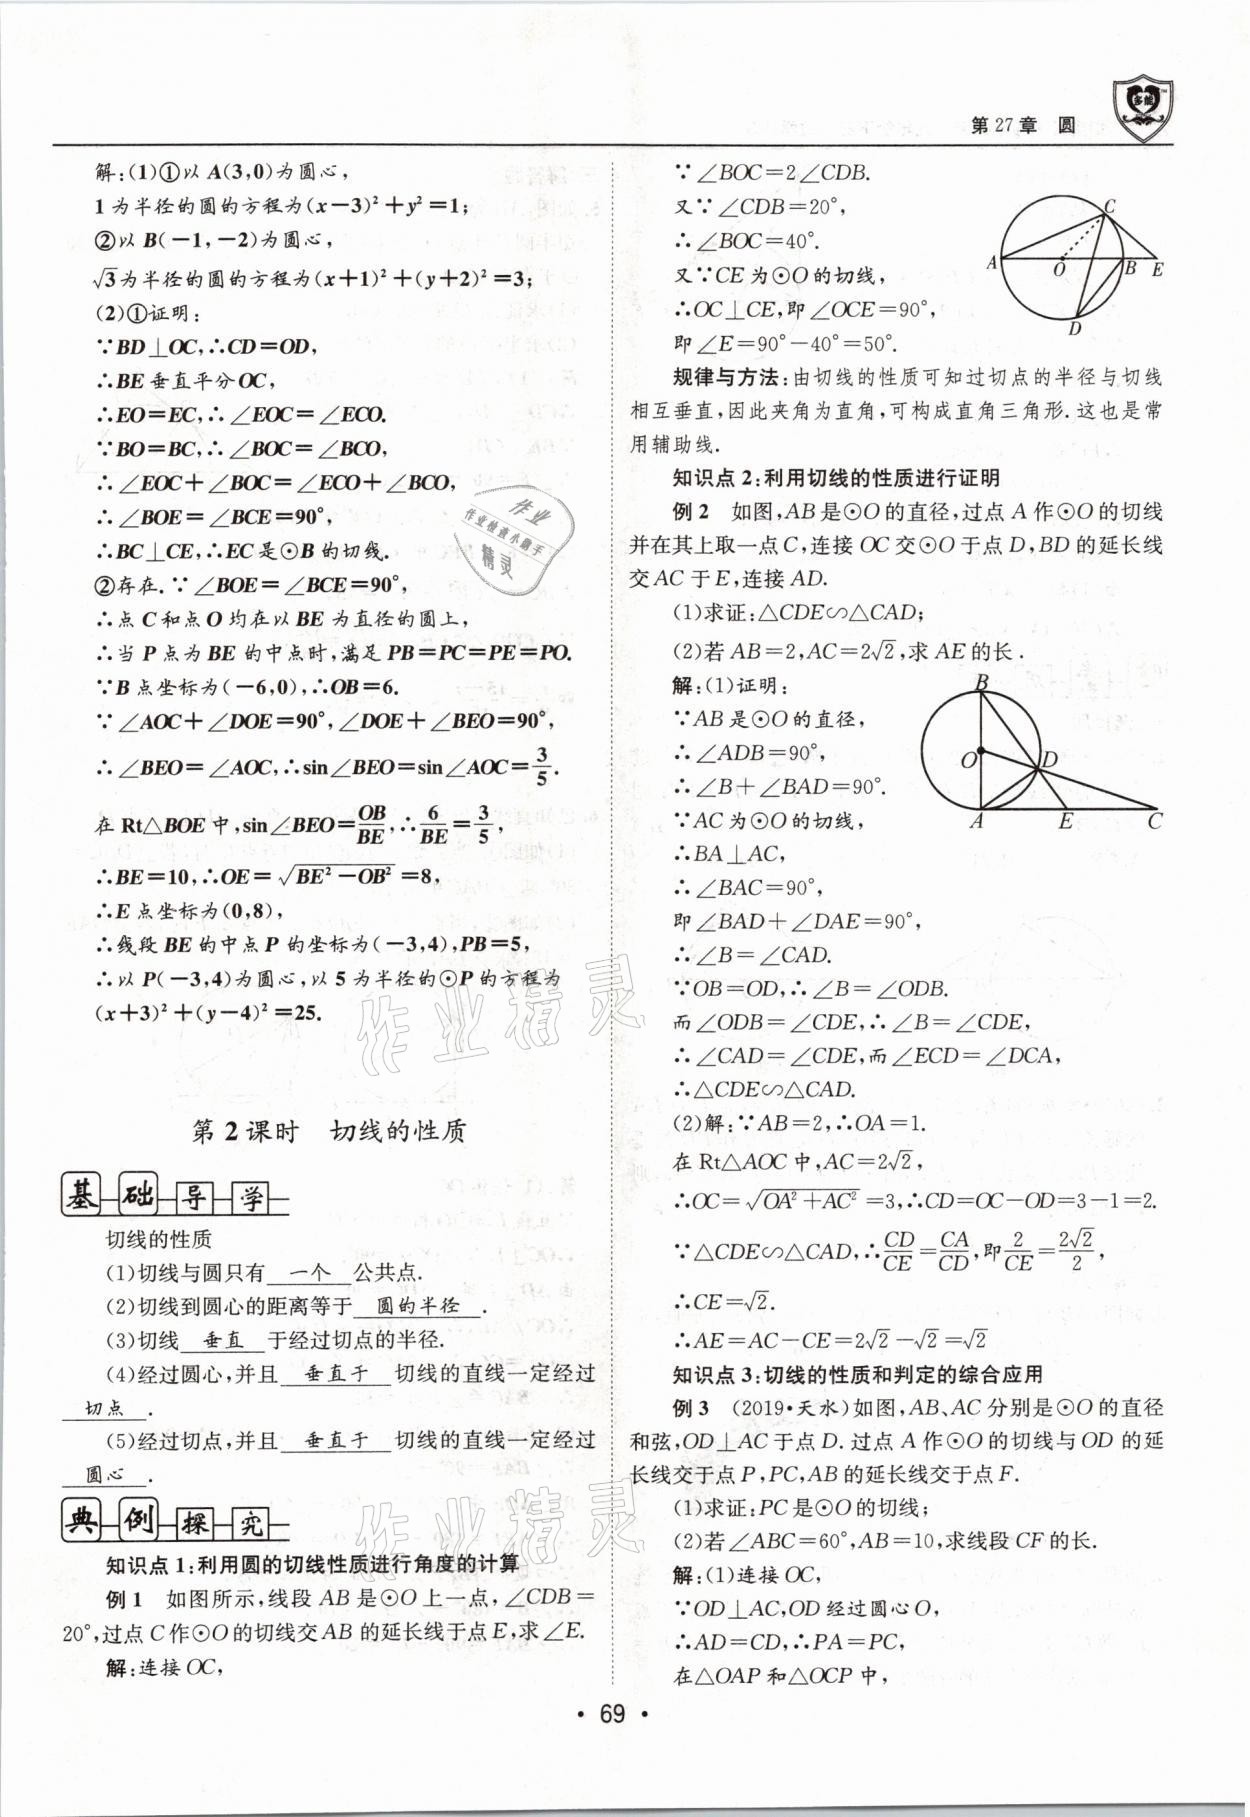 第27章 圆
多能
解:(1)①以 A(3,0)为圆心,
1为半径的圆的方程为(x-3)²+y²=1;
②以 B(-1,-2)为圆心,
√3为半径的圆的方程为(x+1)²+(y+2)²=3;
(2)①证明:
∵BD⊥OC,∴CD=OD,
∴BE垂直平分OC,
∴EO=EC,∴∠EOC=∠ECO.
∵BO=BC,∴∠BOC=∠BCO,
∴∠EOC+∠BOC=∠ECO+∠BCO,
∴∠BOE=∠BCE=90°,
∴BC⊥CE,∴EC是⊙B的切线.
②存在.∵∠BOE=∠BCE=90°,
∴点C和点O均在以BE为直径的圆上,
∴当P点为BE的中点时,满足PB=PC=PE=PO.
∵B点坐标为(-6,0),∴OB=6.
∵∠AOC+∠DOE=90°,∠DOE+∠BEO=90°,
∴∠BEO=∠AOC,∴sin∠BEO=sin∠AOC=3/5.
在Rt△BOE中,sin∠BEO=OB/BE,∴6/BE=3/5,
∴BE=10,∴OE=√(BE²-OB²)=8,
∴E点坐标为(0,8),
∴线段BE的中点P的坐标为(-3,4),PB=5,
∴以P(-3,4)为圆心,以5为半径的⊙P的方程为
(x+3)²+(y-4)²=25.
第2课时 切线的性质
基础导学
切线的性质
(1)切线与圆只有 一个 公共点.
(2)切线到圆心的距离等于 圆的半径 .
(3)切线 垂直 于经过切点的半径.
(4)经过圆心,并且 垂直于 切线的直线一定经过
切点 .
(5)经过切点,并且 垂直于 切线的直线一定经过
圆心 .
典例探究
知识点1:利用圆的切线性质进行角度的计算
例1 如图所示,线段AB是⊙O上一点,∠CDB=
20°,过点C作⊙O的切线交AB的延长线于点E,求∠E.
解:连接OC,
∵∠BOC=2∠CDB.
又∵∠CDB=20°,
∴∠BOC=40°.
又∵CE为⊙O的切线,
∴OC⊥CE,即∠OCE=90°,
即∠E=90°-40°=50°.
A O B E C D
规律与方法:由切线的性质可知过切点的半径与切线
相互垂直,因此夹角为直角,可构成直角三角形.这也是常
用辅助线.
知识点2:利用切线的性质进行证明
例2 如图,AB是⊙O的直径,过点A作⊙O的切线
并在其上取一点C,连接OC交⊙O于点D,BD的延长线
交AC于E,连接AD.
(1)求证:△CDE∽△CAD;
(2)若AB=2,AC=2√2,求AE的长.
解:(1)证明:
∵AB是⊙O的直径,
∴∠ADB=90°,
∴∠B+∠BAD=90°.
∵AC为⊙O的切线,
∴BA⊥AC,
∴∠BAC=90°,
即∠BAD+∠DAE=90°,
∴∠B=∠CAD.
B O D A E C
∵OB=OD,∴∠B=∠ODB.
而∠ODB=∠CDE,∴∠B=∠CDE,
∴∠CAD=∠CDE,而∠ECD=∠DCA,
∴△CDE∽△CAD.
(2)解:∵AB=2,∴OA=1.
在Rt△AOC中,AC=2√2,
∴OC=√(OA²+AC²)=3,∴CD=OC-OD=3-1=2.
∵△CDE∽△CAD,∴CD/CE=CA/CD,即2/CE=2√2/2,
∴CE=√2.
∴AE=AC-CE=2√2-√2=√2
知识点3:切线的性质和判定的综合应用
例3 (2019·天水)如图,AB、AC分别是⊙O的直径
和弦,OD⊥AC于点D.过点A作⊙O的切线与OD的延
长线交于点P,PC,AB的延长线交于点F.
(1)求证:PC是⊙O的切线;
(2)若∠ABC=60°,AB=10,求线段CF的长.
解:(1)连接OC,
∵OD⊥AC,OD经过圆心O,
∴AD=CD,∴PA=PC,
在△OAP和△OCP中,
·69·
作业
作业检查小助手
精灵
作业精灵
作业精灵